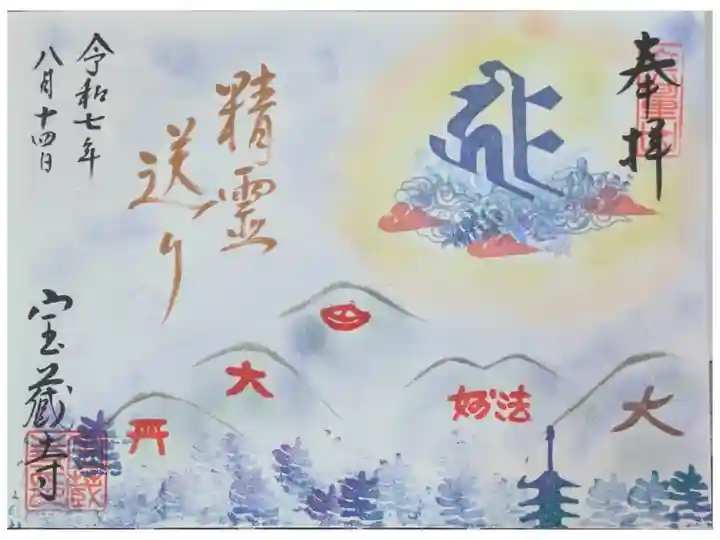 奉拝
精霊
送り
令和七年
八月十四日
宝蔵寺
大
妙法
大
丹